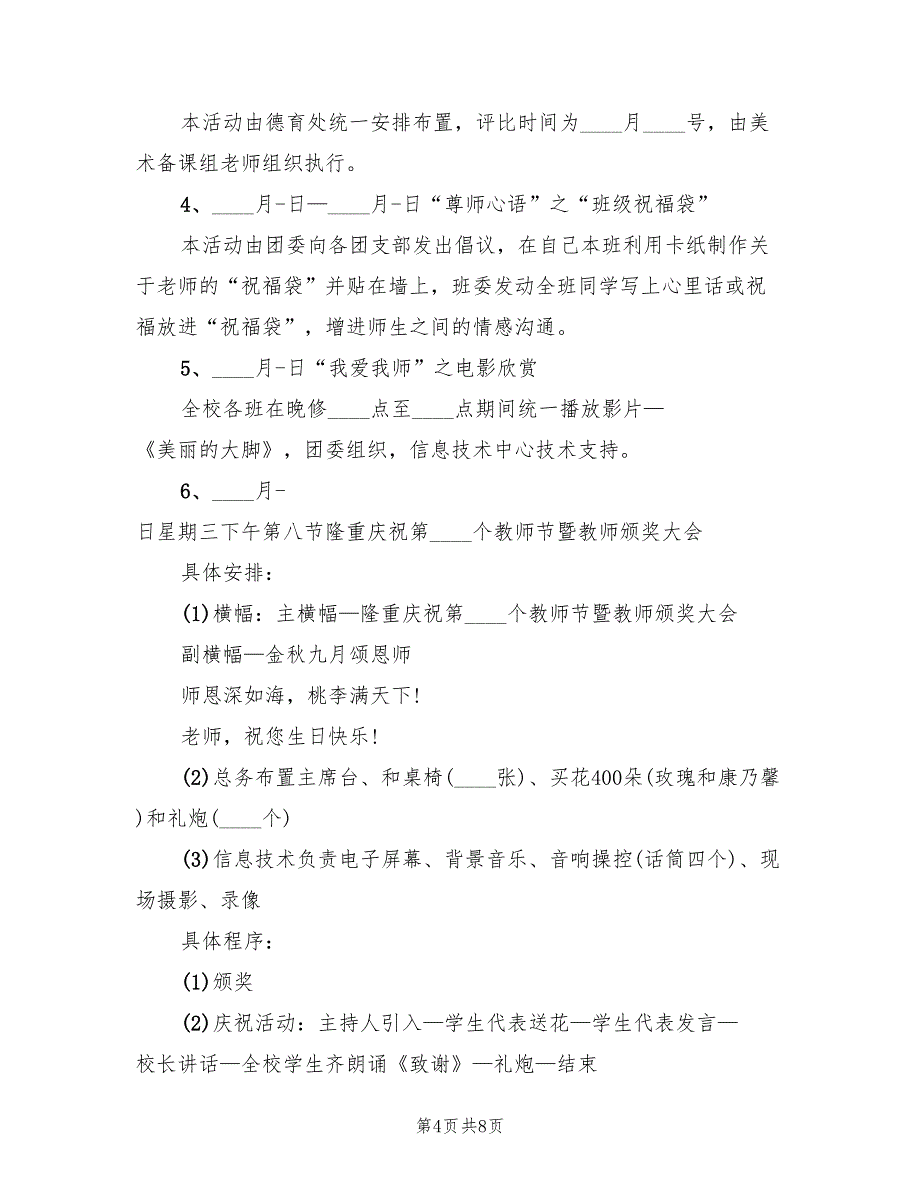 本活动由德育处统一安排布置，评比时间为____月____号，由美
术备课组老师组织执行。
4、____月-日—____月-日“尊师心语”之“班级祝福袋”
本活动由团委向各团支部发出倡议，在自己本班利用卡纸制作关
于老师的“祝福袋”并贴在墙上，班委发动全班同学写上心里话或祝
福放进“祝福袋”，增进师生之间的情感沟通。
5、____月-日“我爱我师”之电影欣赏
全校各班在晚修____点至____点期间统一播放影片—
《美丽的大脚》，团委组织，信息技术中心技术支持。
6、____月-
日星期三下午第八节隆重庆祝第____个教师节暨教师颁奖大会
具体安排：
(1)横幅：主横幅—隆重庆祝第____个教师节暨教师颁奖大会
副横幅—金秋九月颂恩师
师恩深如海，桃李满天下!
老师，祝您生日快乐!
(2)总务布置主席台、和桌椅(____张)、买花400朵(玫瑰和康乃馨
)和礼炮(____个)
(3)信息技术负责电子屏幕、背景音乐、音响操控(话筒四个)、现
场摄影、录像
具体程序：
(1)颁奖
(2)庆祝活动：主持人引入—学生代表送花—学生代表发言—
校长讲话—全校学生齐朗诵《致谢》—礼炮—结束
第4页共8页